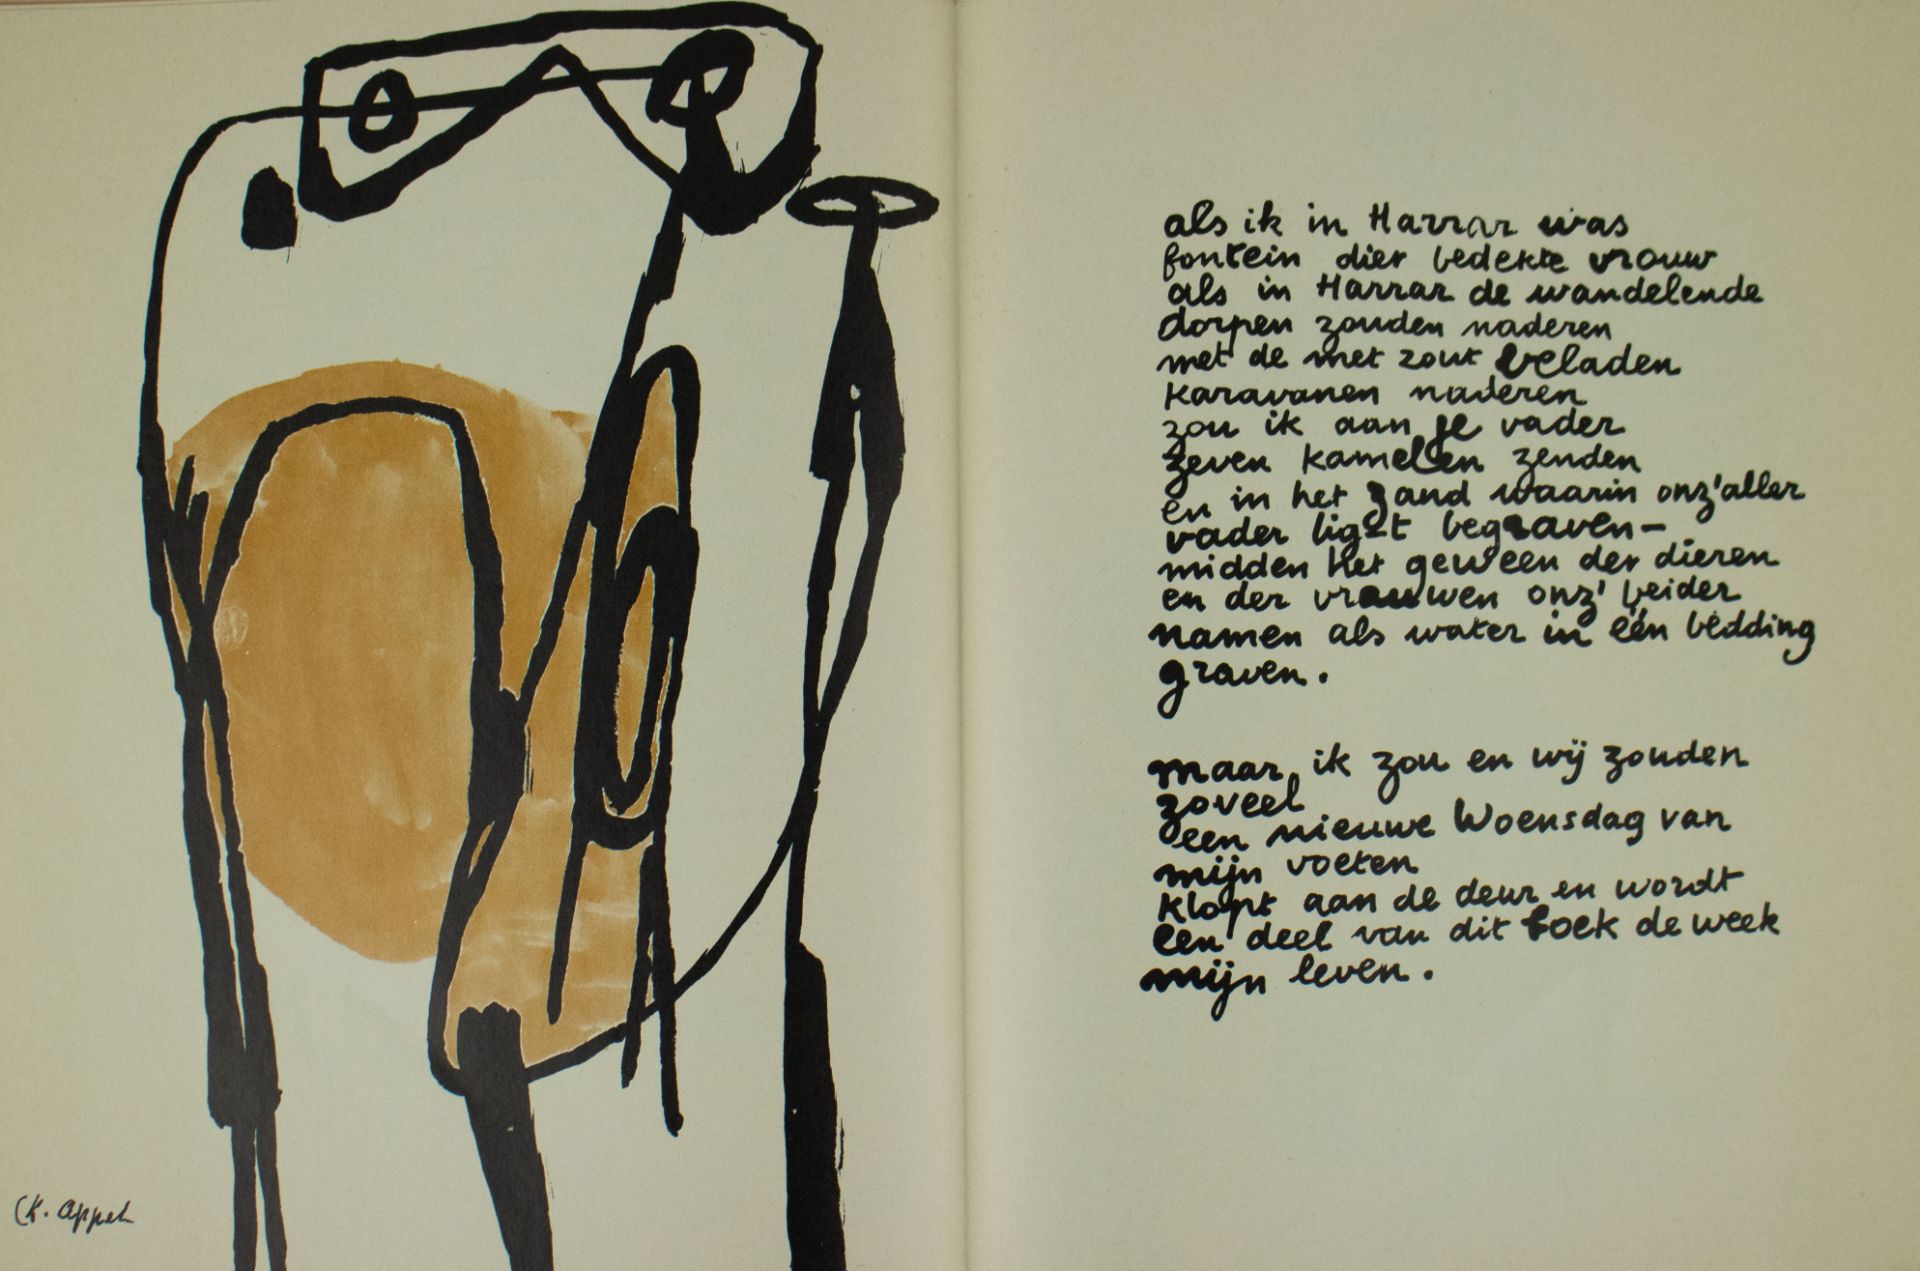 als ik in Harrar was
fontein dier bedekte vrouw
als in Harrar de wandelende
dorpen zouden naderen
met de met zout beladen
karavanen naderen
zou ik aan je vader
zeven kamelen zenden
en in het zand waarin onz'aller
vader ligt begraven—
midden het geween der dieren
en der vrouwen onz' beider
namen als water in één bedding
graven.
maar, ik zou en wij zouden
zoveel
een nieuwe Woensdag van
mijn voeten
klopt aan de deur en wordt
een deel van dit boek de week
mijn leven.
CK. Appel